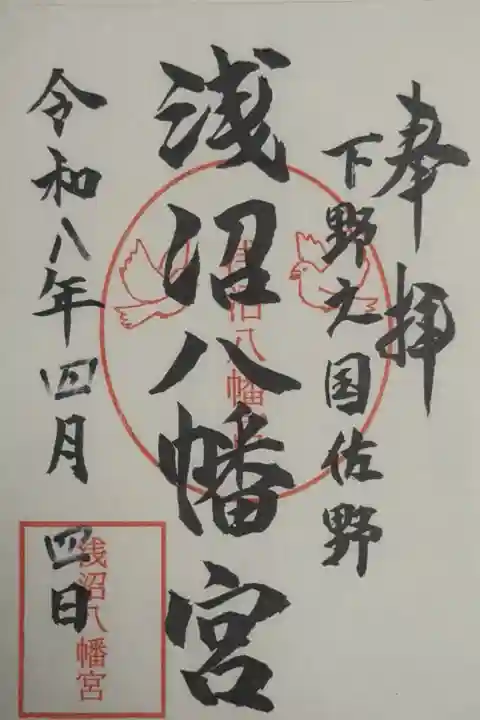 奉拝
下野之国佐野
浅沼八幡宮
浅沼八幡宮
令和八年四月四日
浅沼八幡宮